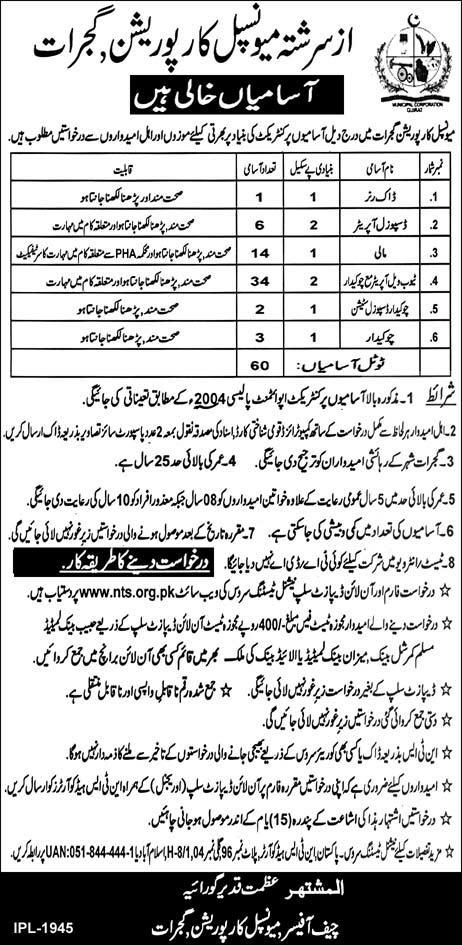 از سرشتہ میونسپل کارپوریشن، گجرات
MUNICIPAL CORPORATION
GUJRAT
آسامیاں خالی ہیں
میونسپل کارپوریشن گجرات میں درج ذیل آسامیوں پر کنٹریکٹ کی بنیاد پر بھرتی کیلئے موزوں اور اہل امیدواروں سے درخواستیں مطلوب ہیں۔
نمبر شمار نام آسامی بنیادی پے سکیل تعداد آسامی قابلیت
1. ڈاک رنر 1 1 صحت مند اور پڑھنا لکھنا جانتا ہو
2. ڈسپوزل آپریٹر 2 6 صحت مند، پڑھنا لکھنا جانتا ہو اور متعلقہ کام میں مہارت
3. مالی 1 14 صحت مند، پڑھنا لکھنا جانتا ہو اور محکمہ PHA سے متعلقہ کام میں مہارت کا سرٹیفکیٹ
4. ٹیوب ویل آپریٹر مع چوکیدار 2 34 صحت مند، پڑھنا لکھنا جانتا ہو اور متعلقہ کام میں مہارت
5. چوکیدار ڈسپوزل سٹیشن 1 2 صحت مند، پڑھنا لکھنا جانتا ہو
6. چوکیدار 1 3 صحت مند، پڑھنا لکھنا جانتا ہو
ٹوٹل آسامیاں: 60
شرائط 1- مذکورہ بالا آسامیوں پر کنٹریکٹ اپوائنٹمنٹ پالیسی 2004ء کے مطابق تعیناتی کی جائیگی۔
2- اہل امیدوار ہر لحاظ سے مکمل درخواست کے ساتھ کمپیوٹرائزڈ قومی شناختی کارڈ، اسناد کی مصدقہ نقول بمعہ 2 عدد پاسپورٹ سائز تصاویر بذریعہ ڈاک ارسال کریں۔
3- گجرات شہر کے رہائشی امیدواران کو ترجیح دی جائیگی۔ 4- عمر کی بالائی حد 25 سال ہے۔
5- عمر کی بالائی حد میں 5 سال عمومی رعایت کے علاوہ خواتین امیدواروں کو 08 سال جبکہ معذور افراد کو 10 سال کی رعایت دی جائیگی۔
6- آسامیوں کی تعداد میں کمی و بیشی کی جا سکتی ہے۔ 7- مقررہ تاریخ کے بعد موصول ہونے والی درخواستیں زیر غور نہیں لائی جائیں گی۔
8- ٹیسٹ/انٹرویو میں شرکت کیلئے کوئی ٹی اے/ڈی اے نہیں دیا جائیگا۔ درخواست دینے کا طریقہ کار۔
☆ درخواست فارم اور آن لائن ڈیپازٹ سلپ نیشنل ٹیسٹنگ سروس کی ویب سائٹ www.nts.org.pk پر دستیاب ہیں۔
☆ درخواست دینے والے امیدوار مجوزہ ٹیسٹ فیس مبلغ -/400 روپے مجوزہ ٹیسٹ آن لائن ڈیپازٹ سلپ کے ذریعے حبیب بینک
مسلم کمرشل بینک، میزان بینک لمیٹیڈ یا الائیڈ بینک کی ملک بھر میں قائم کسی بھی آن لائن برانچ میں جمع کروائیں۔
☆ ڈیپازٹ سلپ کے بغیر درخواست زیر غور نہیں لائی جائیگی۔ ☆ جمع شدہ رقم ناقابل واپسی اور ناقابل منتقلی ہے۔
☆ دستی جمع کروائی گئی درخواستیں زیر غور نہیں لائی جائیں گی۔
☆ این ٹی ایس بذریعہ ڈاک یا کسی بھی کوریئر سروس کے ذریعے بھیجی جانے والی درخواستوں کے تاخیر سے ملنے کا ذمہ دار نہیں ہوگا۔
☆ امیدواروں کیلئے ضروری ہے کہ اپنی درخواستیں مقررہ فارم پر آن لائن ڈیپازٹ سلپ (اوریجنل) کے ہمراہ این ٹی ایس ہیڈ کوارٹرز کو ارسال کریں۔
☆ درخواستیں اشتہار ہذا کی اشاعت کے پندرہ (15) یام کے اندر موصول ہو جانی چاہئیں۔
☆ مزید تفصیلات کیلئے نیشنل ٹیسٹنگ سروس- پاکستان، این ٹی ایس ہیڈ کوارٹر، پلاٹ نمبر 96، گلی نمبر 04، H-8/1، اسلام آباد یا UAN: 051-844-444-1 پر رابطہ کریں۔
المشتہر عظمت قدیر گورائیہ
چیف آفیسر، میونسپل کارپوریشن، گجرات
IPL-1945